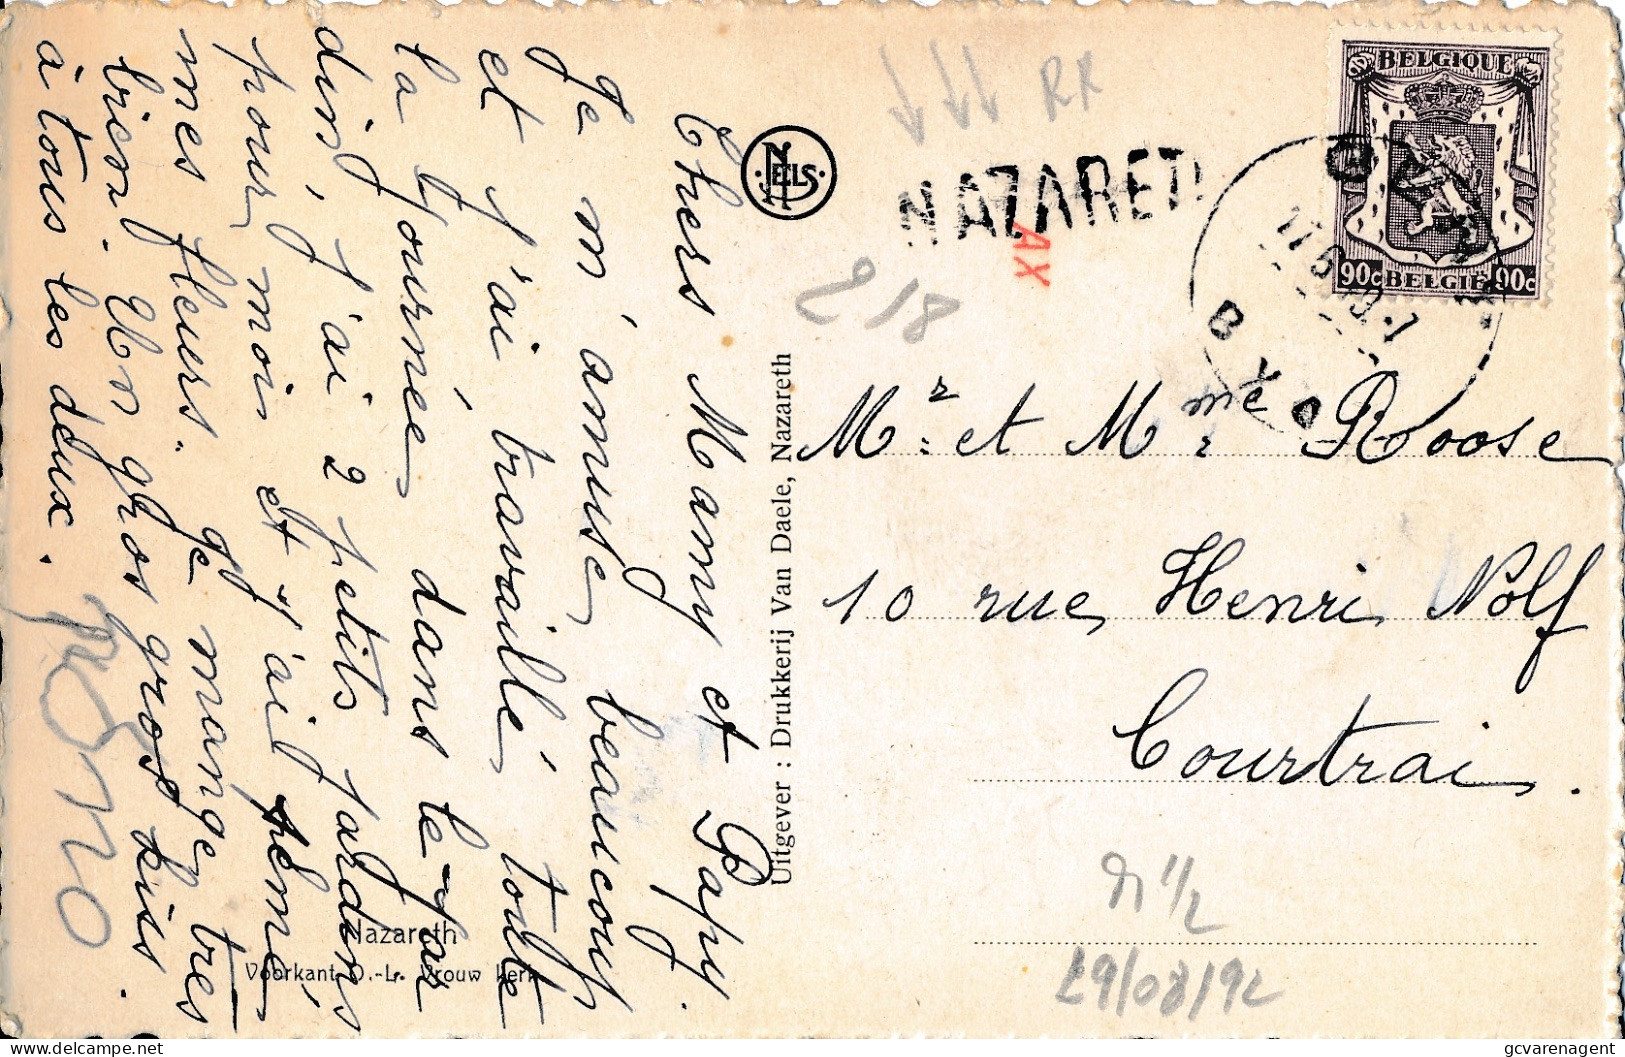 Chers Mamy et Papy.
Je m'amuse beaucoup
et j'ai travaillé toute
la journée dans le jar
din, j'ai 2 petits jardins
pour moi et j'ai semé
mes fleurs. Je mange tres
bien. Un gros gros kiss
à tous les deux.
Nazareth
Voorkant O.-L. Vrouw Kerk
Uitgever : Drukkerij Van Daele, Nazareth
NELS
RR
NAZARET
AX
218
BELGIQUE
90c BELGIË 90c
Mr et Mme Roose
10 rue Henri Nolf
Courtrai.
29/08/92
gcvarenagent
delcampe.net